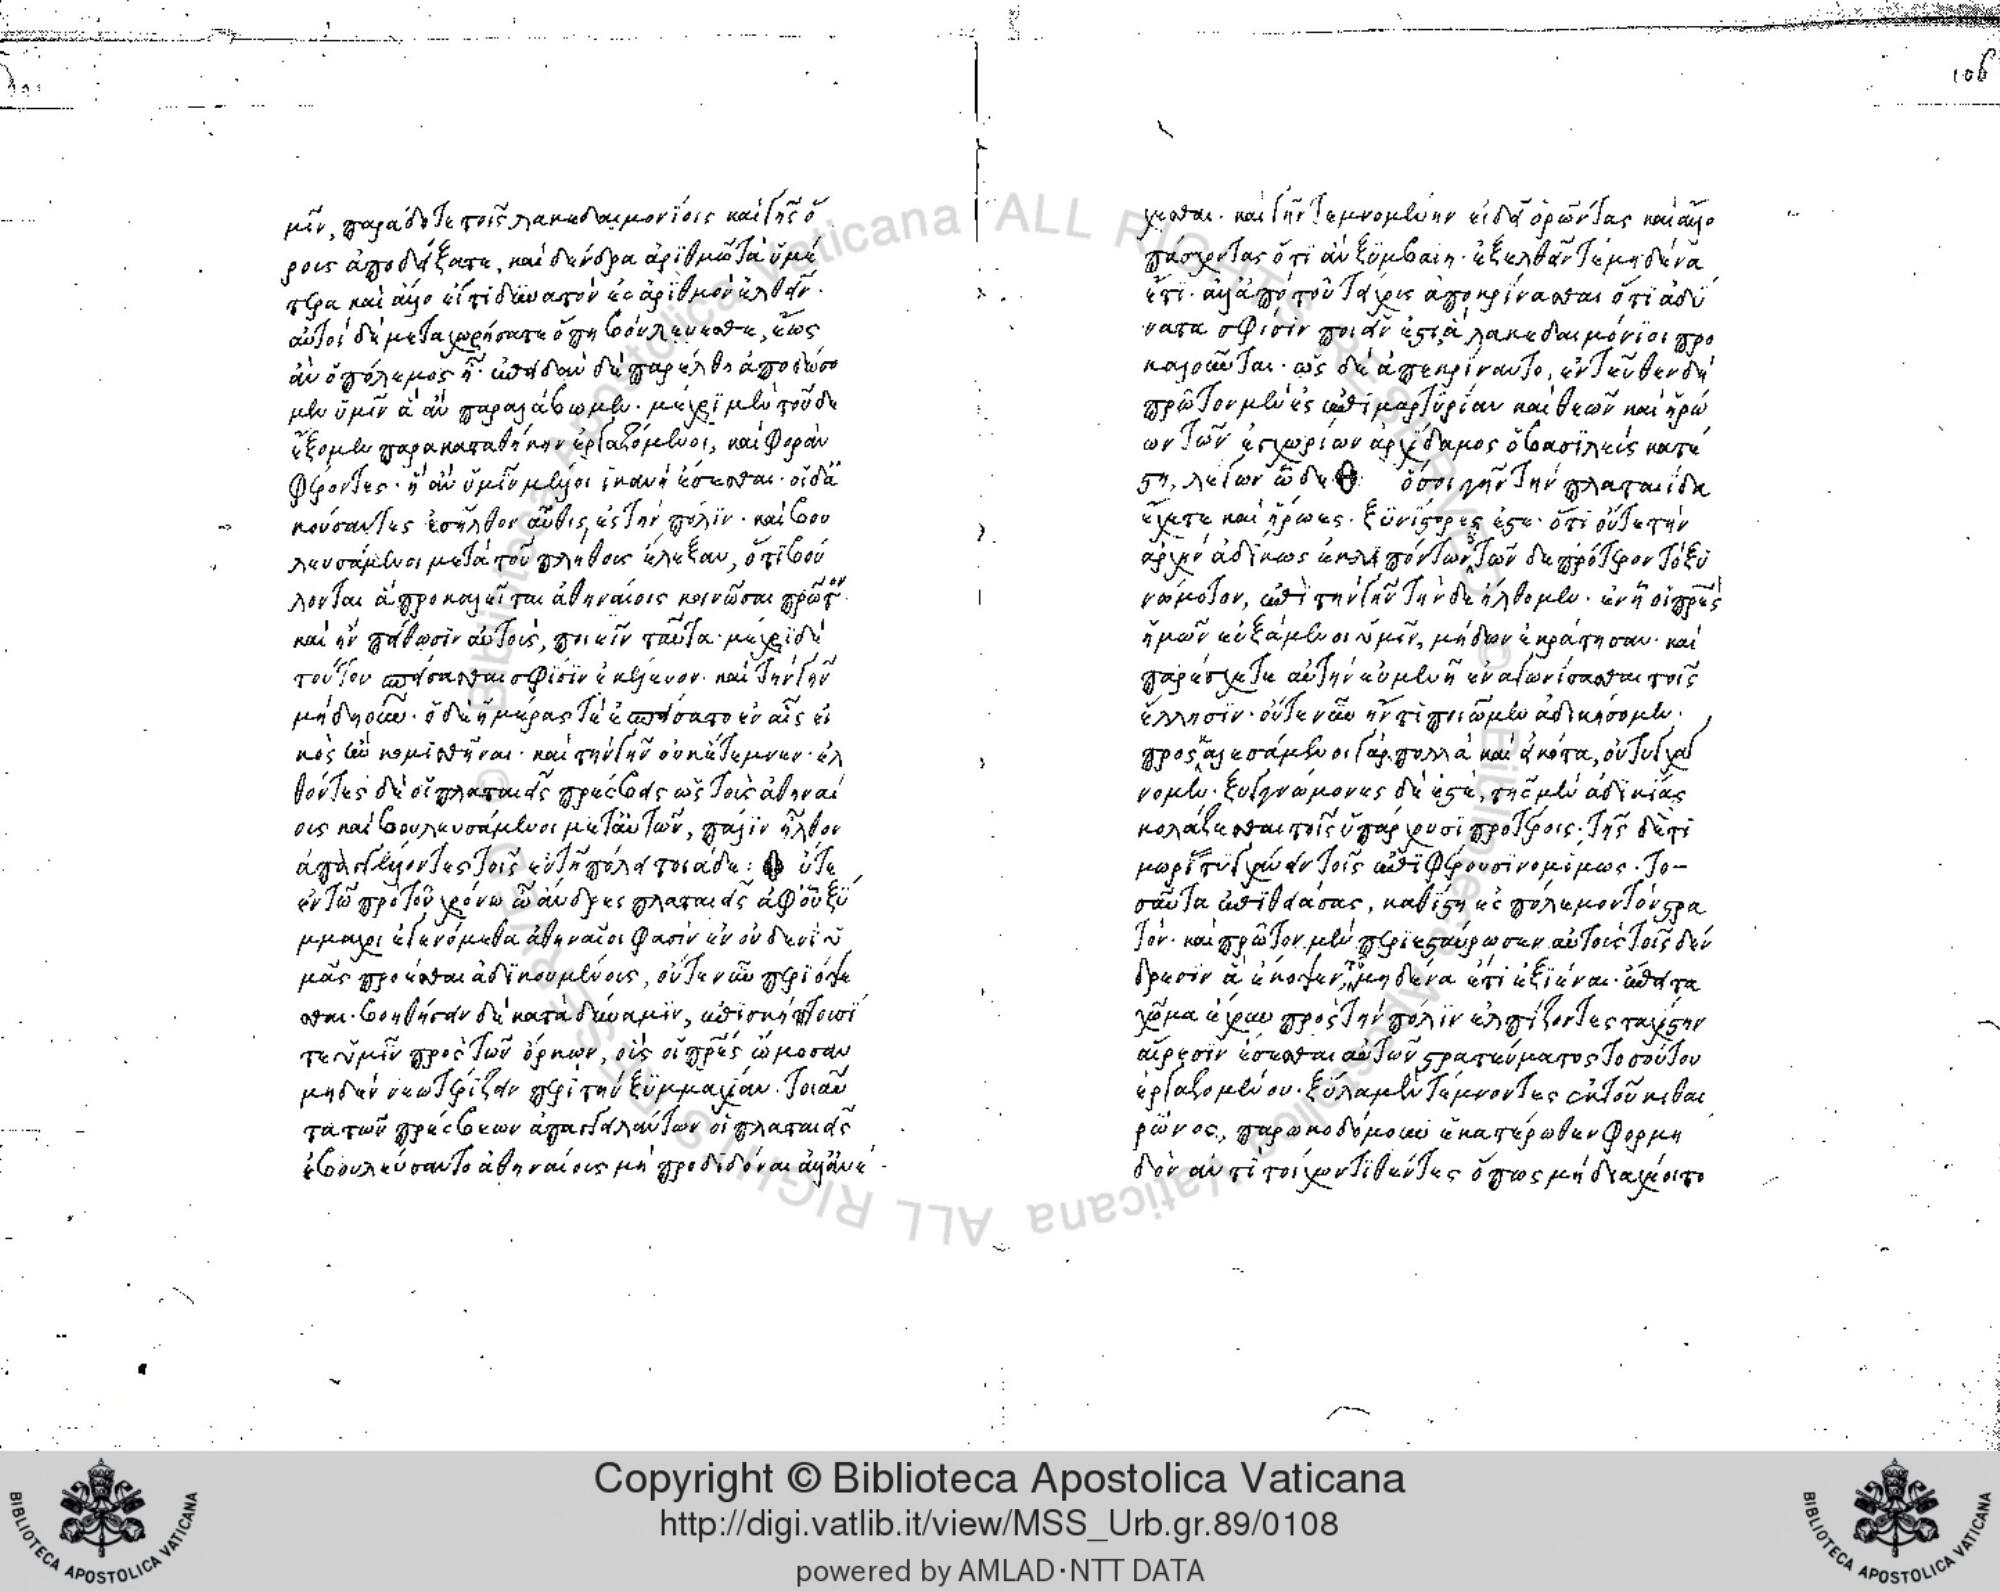 106
μῖν, παράδοτε τοῖς λακεδαιμονίοις καὶ γῆς ὅ
ρους ἀποδείξατε, καὶ δένδρα ἀριθμῶ τὰ ὑμέ
τερα καὶ ἄλλο εἴ τι δυνατὸν ἐς ἀριθμὸν ἐλθεῖν·
αὐτοὶ δὲ μεταχωρήσατε ὅπη βούλεσθε, ἕως
ἂν ὁ πόλεμος ἦ· ἐπειδὰν δὲ παρέλθη ἀποδώσο
μεν ὑμῖν ἃ ἂν παραλάβωμεν· μέχρι μὲν τοῦδε
ἕξομεν παρακαταθήκην ἐργαζόμενοι, καὶ φορὰν
φέροντες· ἣ ἂν ὑμῖν μέλλοι ἱκανὴ ἔσεσθαι· οἱ δ' ἀ
κούσαντες ἐσῆλθον αὖθις ἐς τὴν πόλιν· καὶ βου
λευσάμενοι μετὰ τοῦ πλήθους ἔλεξαν, ὅτι βού
λονται ἃ προκαλεῖται ἀθηναίοις κοινῶσαι πρῶτον·
καὶ ἢν πείθωσιν αὐτοὺς, ποιεῖν ταῦτα· μέχρι δὲ
τούτου σπείσασθαι σφίσιν ἐκέλευον· καὶ τὴν γῆν
μὴ δηοῦν· ὁ δὲ ἡμέρας τε ἐσπείσατο ἐν αἷς εἰ
κὸς ἦν κομισθῆναι· καὶ τὴν γῆν οὐκ ἔτεμνεν· ἐλ
θόντες δὲ οἱ πλαταιεῖς πρέσβεις ὡς τοὺς ἀθηναί
ους καὶ βουλευσάμενοι μετ' αὐτῶν, πάλιν ἦλθον
ἀπαγγέλλοντες τοῖς ἐν τῆ πόλει τοιάδε: οὔτε
ἐν τῶ πρὸ τοῦ χρόνω ὦ ἄνδρες πλαταιεῖς ἀφ' οὗ ξύ
μμαχοι ἐγενόμεθα ἀθηναῖοι φασὶν ἐν οὐδενὶ ὑ
μᾶς προέσθαι ἀδικουμένους, οὔτε νῦν περιόψε
σθαι· βοηθήσειν δὲ κατὰ δύναμιν, ἐπισκήπτουσί
τε ὑμῖν πρὸς τῶν ὅρκων, οὓς οἱ πρες ὤμοσαν
μηδὲν νεωτερίζειν περὶ τὴν ξυμμαχίαν· τοιαῦ
τα τῶν πρέσβεων ἀπαγγειλάντων οἱ πλαταιεῖς
ἐβουλεύσαντο ἀθηναίους μὴ προδιδόναι ἀλλ' ἀνέ
χεσθαι· καὶ γῆν τεμνομένην εἰ δεῖ ὁρῶντας καὶ ἄλλο
πάσχοντας ὅτι ἂν ξυμβαίη· ἐξελθεῖν τε μηδένα
ἔτι· ἀλλ' ἀπὸ τοῦ τείχους ἀποκρίνασθαι ὅτι ἀδύ
νατα σφίσιν ποιεῖν ἐστὶ ἃ λακεδαιμόνιοι προ
καλοῦνται· ὡς δὲ ἀπεκρίναντο, ἐντεῦθεν δὴ
πρῶτον μὲν ἐς ἐπιμαρτυρίαν καὶ θεῶν καὶ ἡρώ
ων τῶν ἐγχωρίων ἀρχίδαμος ὁ βασιλεὺς κατέ
στη, λέγων ὧδε ὅσοι γῆν τὴν πλαταιίδα
ἔχετε καὶ ἥρωες· ξυνίστορες ἐστε· ὅτι οὔτε τὴν
ἀρχὴν ἀδίκως ἐκλιπόντων τῶν δε πρότερον τὸ ξυ
νώμοτον, ἐπὶ τὴν γῆν τὴνδε ἤλθομεν· ἐν ἧ οἱ πρες
ἡμῶν εὐξάμενοι ὑμῖν, μήδων ἐκράτησαν· καὶ
παρέσχετε αὐτὴν εὐμενῆ ἐναγωνίσασθαι τοῖς
ἕλλησιν· οὔτε νῦν ἤν τι ποιῶμεν ἀδικήσομεν·
προσκαλεσάμενοι γὰρ πολλὰ καὶ εἰκότα, οὐ τυγχά
νομεν· ξυγγνώμονες δὲ ἐστὲ, τῆς μὲν ἀδικίας
κολάζεσθαι τοῖς ὑπάρχουσι προτέροις· τῆς δὲ τι
μωρίας τυγχάνειν τοῖς ἐπιφέρουσι νομίμως· το–
σαῦτα ἐπιθειάσας, καθίστη ἐς πόλεμον τὸν στρα
τόν· καὶ πρῶτον μὲν περιεσταύρωσεν αὐτοὺς τοῖς δέν
δρεσιν ἃ ἔκοψεν, τοῦ μηδένα ἔτι ἐξιέναι· ἔπειτα
χῶμα ἔχουν πρὸς τὴν πόλιν ἐλπίζοντες ταχίστην
αἵρεσιν ἔσεσθαι αὐτῶν στρατεύματος τοσούτου
ἐργαζομένου· ξύλα μὲν τέμνοντες ἐκ τοῦ κιθαι
ρῶνος, παρωκοδόμουν ἑκατέρωθεν φορμη
δὸν ἀντὶ τοίχων τιθέντες ὅπως μὴ διαχέοιτο
Copyright © Biblioteca Apostolica Vaticana
http://digi.vatlib.it/view/MSS_Urb.gr.89/0108
powered by AMLAD·NTT DATA
BIBLIOTECA APOSTOLICA VATICANA
BIBLIOTECA APOSTOLICA VATICANA